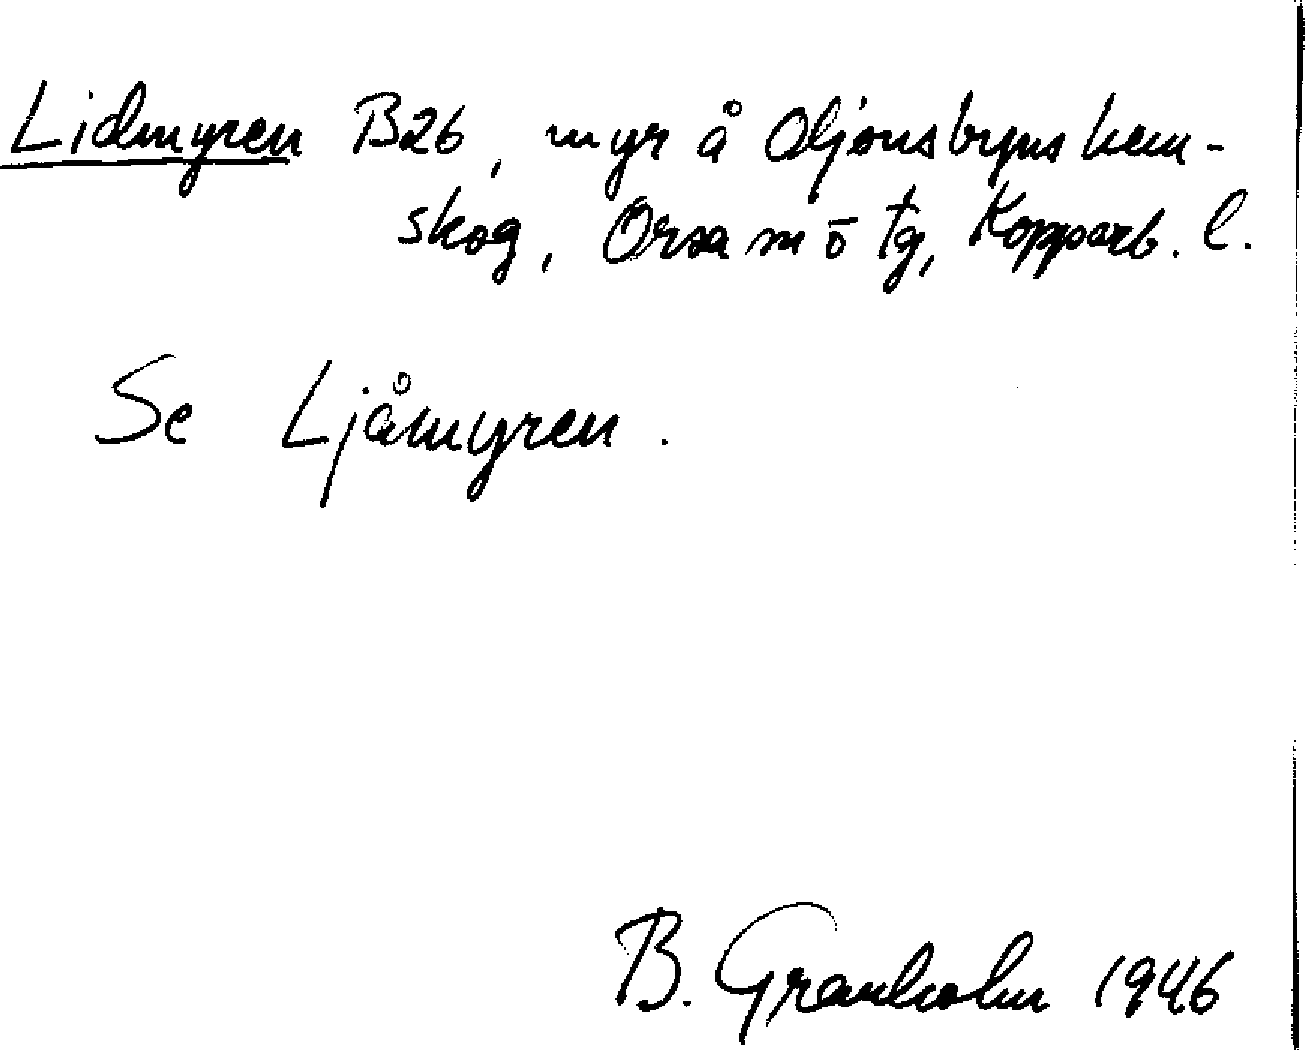 Lidmyren B26, myr å Oljonsbyns hem-
skog, Orsa m ō tg, Kopparb. l.
Se Ljåmyren.
B. Granholm 1946